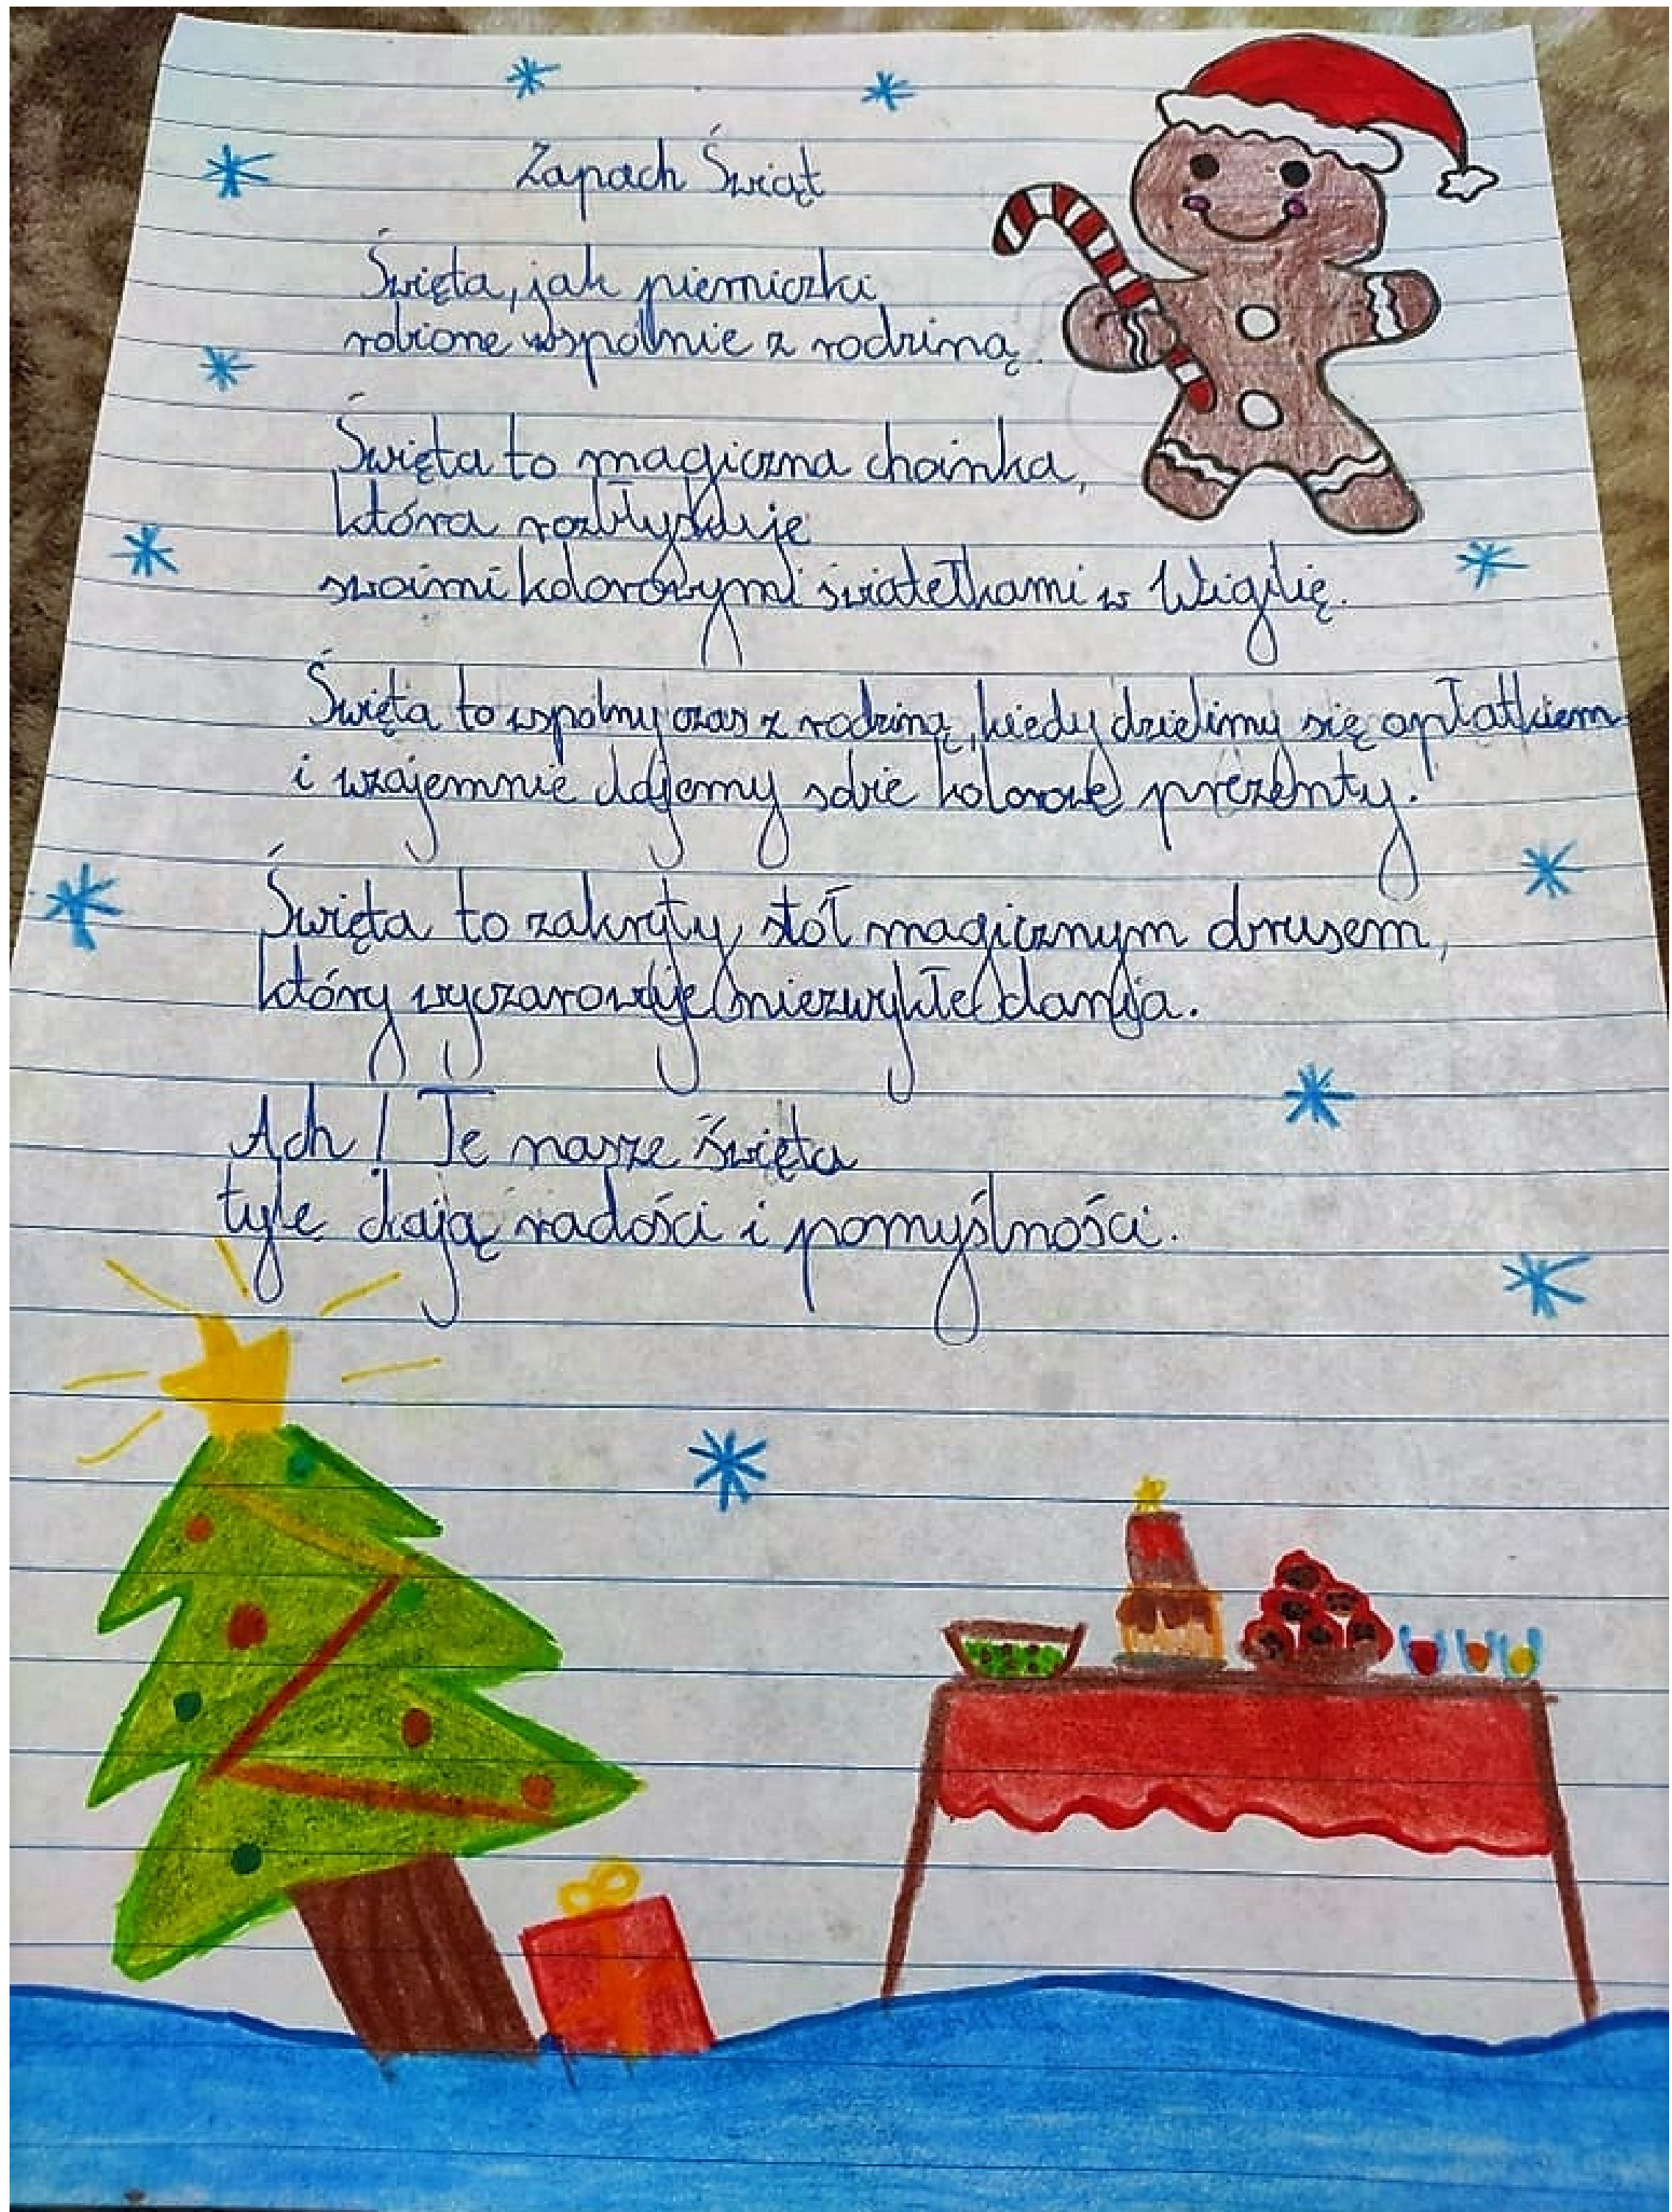 Zapach Świąt
Święta, jak pierniczki
robione wspólnie z rodziną.
Święta to magiczna choinka,
która rozbłyskuje
swoimi kolorowymi światełkami w Wigilię.
Święta to wspólny czas z rodziną, kiedy dzielimy się opłatkiem
i wzajemnie dajemy sobie kolorowe prezenty.
Święta to zakryty stół magicznym obrusem,
który wyczarowuje niezwykłe dania.
Ach! Te nasze święta
tyle dają radości i pomyślności.